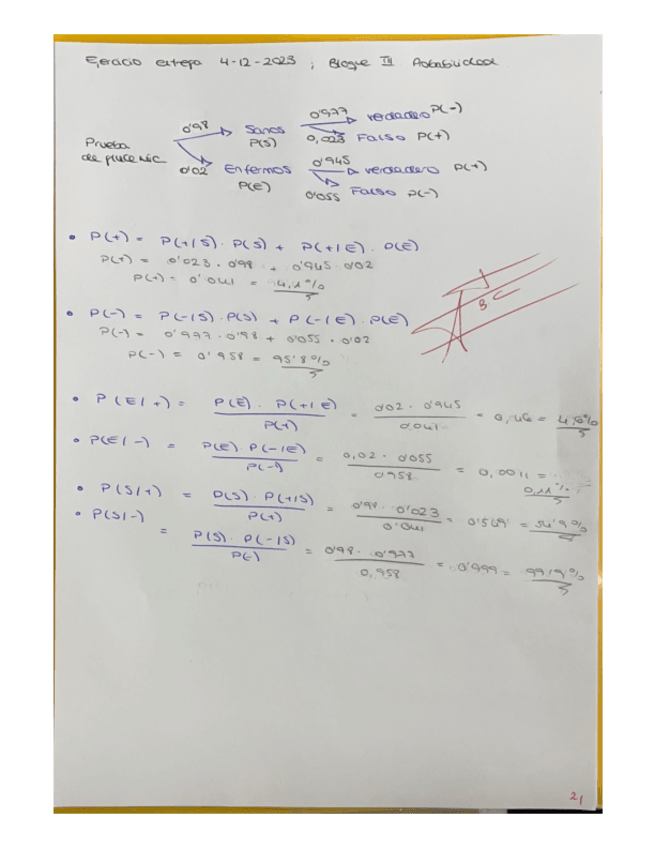 Ejercicio entrega 4-12-2023 ; Bloque III Probabilidad.
0'98 Sanos P(S) 0'977 verdadero P(-)
0,023 Falso P(+)
Prueba de
0'02 Enfermos P(E) 0'945 verdadero P(+)
0'055 Falso P(-)
• P(+) = P(+/S) · P(S) + P(+/E) · P(E)
P(+) = 0'023 · 0'98 + 0'945 · 0'02
P(+) = 0'041 = 4,1%
• P(-) = P(-/S) · P(S) + P(-/E) · P(E)
P(-) = 0'977 · 0'98 + 0'055 · 0'02
P(-) = 0'958 = 95'8%
• P(E/+) = P(E) · P(+/E) / P(+) = 0'02 · 0'945 / 0'041 = 0,46 =
• P(E/-) = P(E) · P(-/E) / P(-) = 0,02 · 0'055 / 0'958 = 0,0011 = 0,11%
• P(S/+) = P(S) · P(+/S) / P(+) = 0'98 · 0'023 / 0'041 = 0'549 = 54'9%
• P(S/-) = P(S) · P(-/S) / P(-) = 0'98 · 0'977 / 0,958 = 0'999 = 99,9%
21